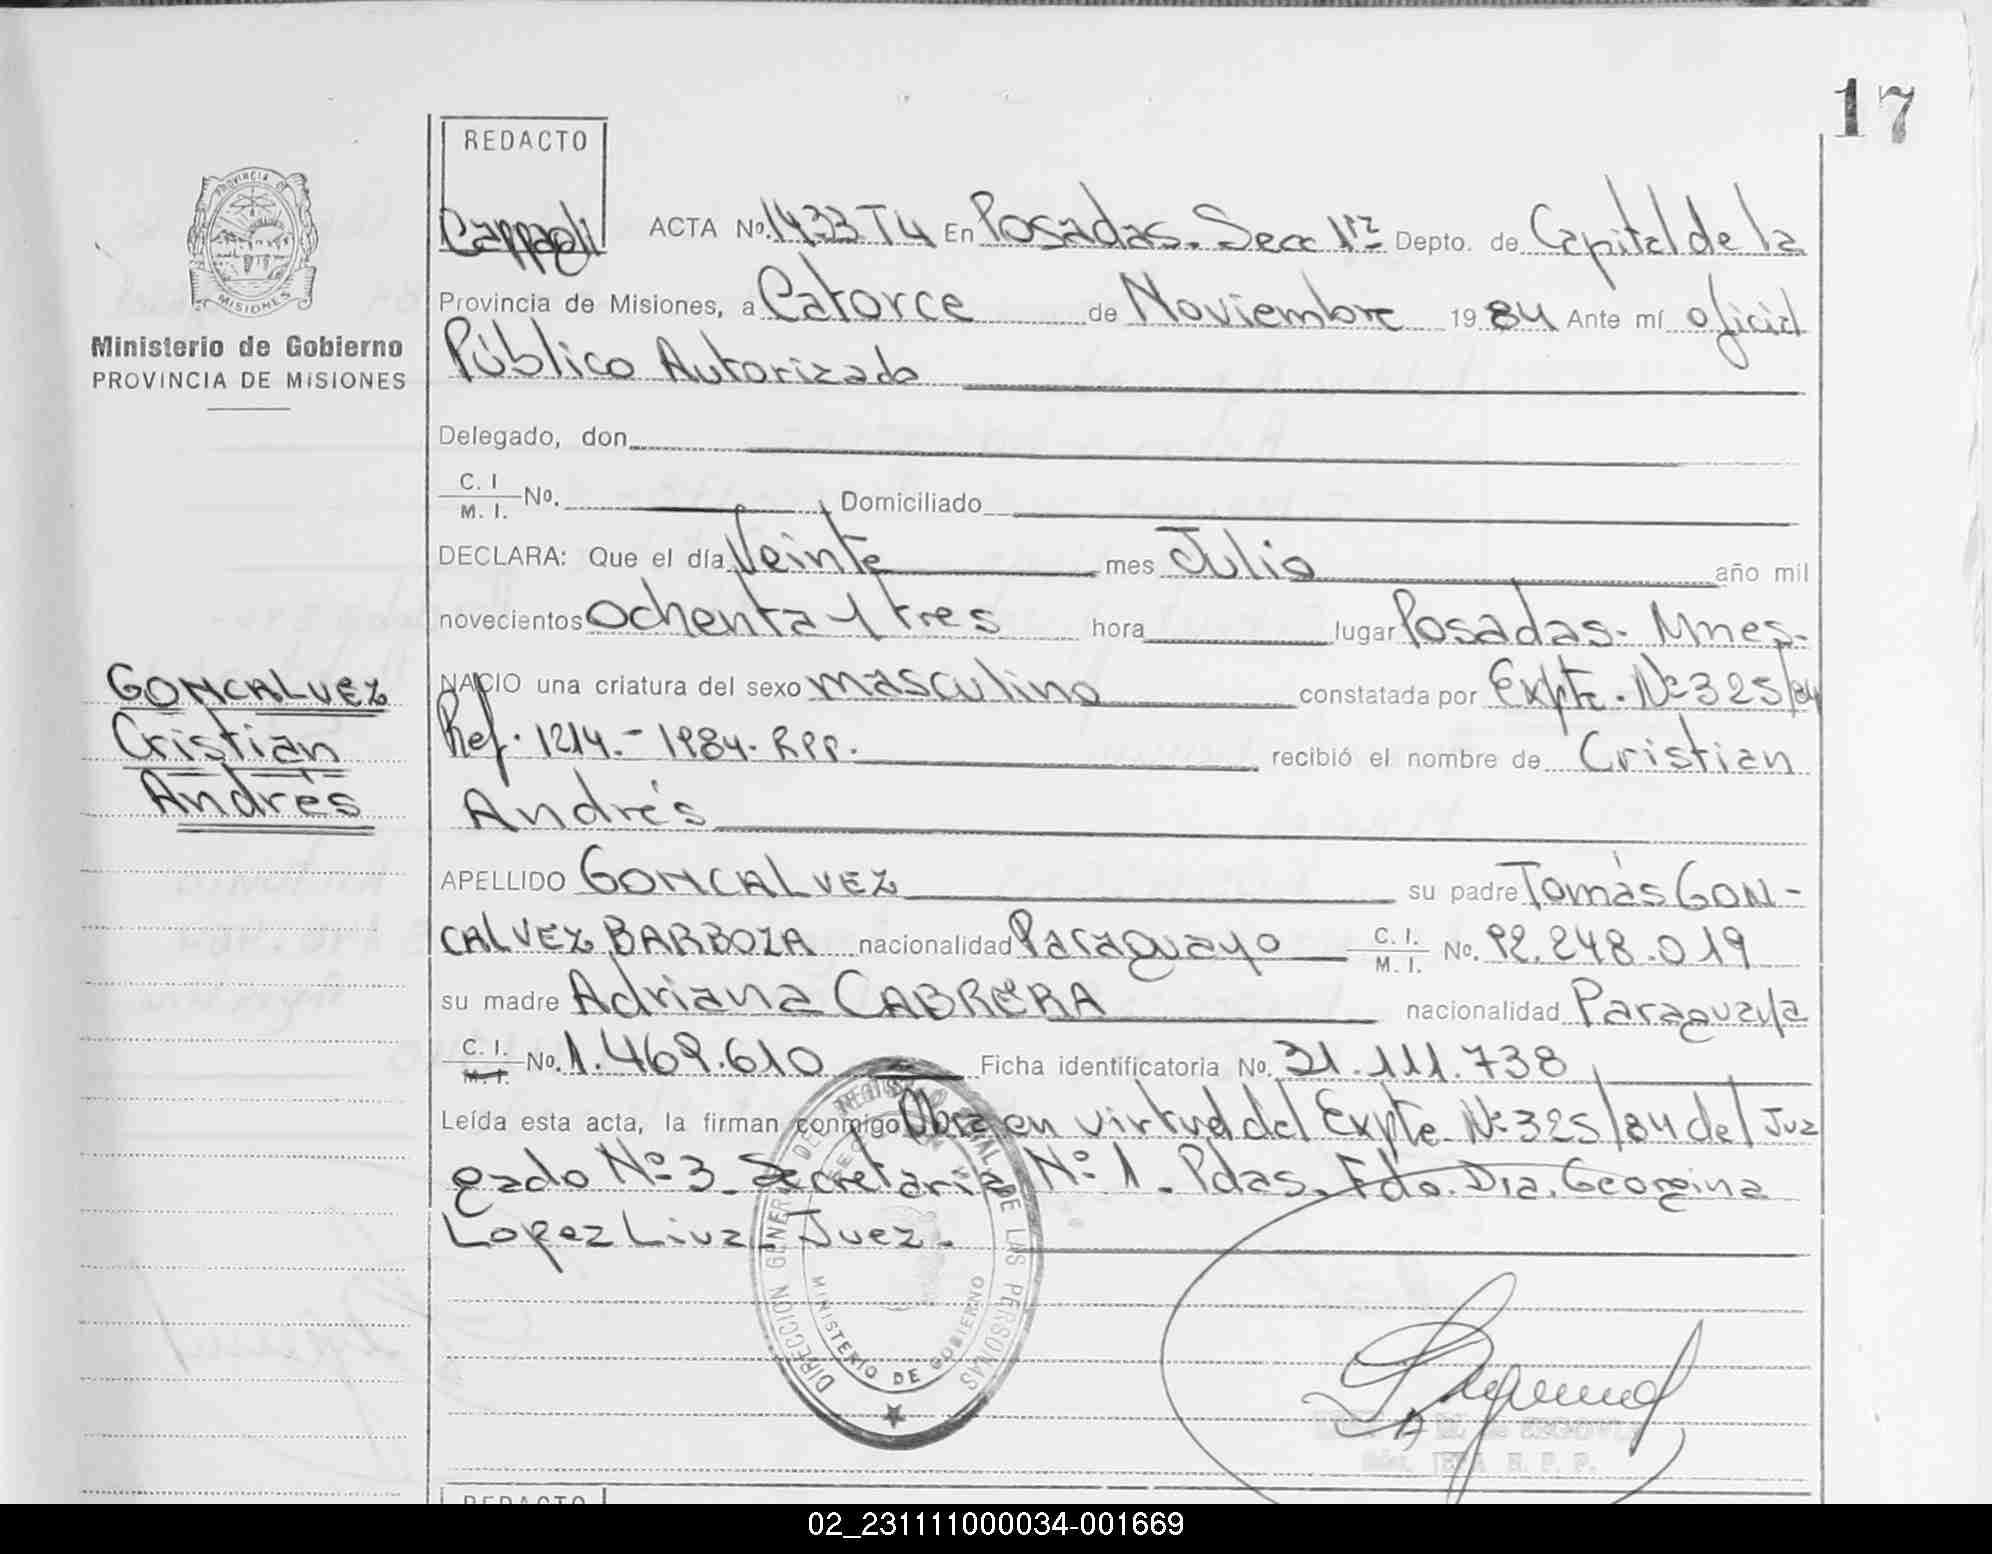 17
REDACTO
Cappagli
ACTA Nº. 1433 T4 En Posadas. Secc 1ra Depto. de Capital de la
Provincia de Misiones, a Catorce de Noviembre 1984 Ante mí oficial
Público Autorizado
PROVINCIA DE
MISIONES
Ministerio de Gobierno
PROVINCIA DE MISIONES
Delegado, don
C. I
M. I. Nº. Domiciliado
DECLARA: Que el día Veinte mes Julio año mil
novecientos ochenta y tres hora lugar Posadas. Mnes.
GONCALVEZ
Cristian
Andrés
NACIO una criatura del sexo masculino constatada por Expte. Nº 325/84
Ref. 1214.- 1984. RPP. recibió el nombre de Cristian
Andrés
APELLIDO GONCALVEZ su padre Tomás GON-
CALVEZ BARBOZA nacionalidad Paraguayo C. I. M. I. Nº. 92.248.019
su madre Adriana CABRERA nacionalidad Paraguaya
C. I. M. I. Nº. 1.469.610 Ficha identificatoria Nº. 31.111.738
Leída esta acta, la firman conmigo Obra en virtud del Expte Nº 325/84 del Juz
gado Nº 3 Secretaria Nº 1. Pdas. Fdo. Dra. Georgina
Lopez Liva Juez.
DIRECCION GENERAL DEL REGISTRO DE LAS PERSONAS
MINISTERIO DE GOBIERNO
DE SEGOVIA
R. P. P.
REDACTO
02_231111000034-001669